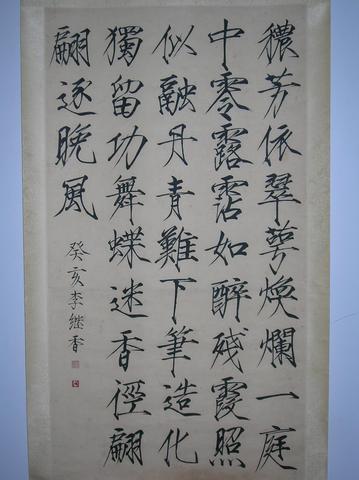 穠芳依翠萼煥爛一庭
中零露霑如醉殘霞照
似融丹青難下筆造化
獨留功舞蝶迷香徑翩
翩逐晚風
癸亥李继香